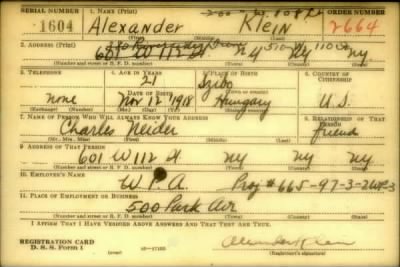 SERIAL NUMBER 1. NAME (Print) ORDER NUMBER
1604 Alexander Klein 2664
(First) (Middle) (Last)
2. ADDRESS (Print)
601 W 112 St NY NY NY
(Number and street or R. F. D. number) (Town) (County) (State)
3. TELEPHONE 4. AGE IN YEARS 5. PLACE OF BIRTH 6. COUNTRY OF CITIZENSHIP
21
none DATE OF BIRTH Hungary U.S.
Nov 12 1918
(Exchange) (Number) (Mo.) (Day) (Yr.) (State or country)
7. NAME OF PERSON WHO WILL ALWAYS KNOW YOUR ADDRESS 8. RELATIONSHIP OF THAT PERSON
Charles Neider friend
(Mr., Mrs., Miss) (First) (Middle) (Last)
9. ADDRESS OF THAT PERSON
601 W 112 St NY NY NY
(Number and street or R. F. D. number) (Town) (County) (State)
10. EMPLOYER'S NAME
W.P.A. Proj # 665-97-3-
11. PLACE OF EMPLOYMENT OR BUSINESS
500 Park Ave
(Number and street or R. F. D. number) (Town) (County) (State)
I AFFIRM THAT I HAVE VERIFIED ABOVE ANSWERS AND THAT THEY ARE TRUE.
REGISTRATION CARD
D. S. S. Form 1
Alexander Klein
(Registrant's signature)